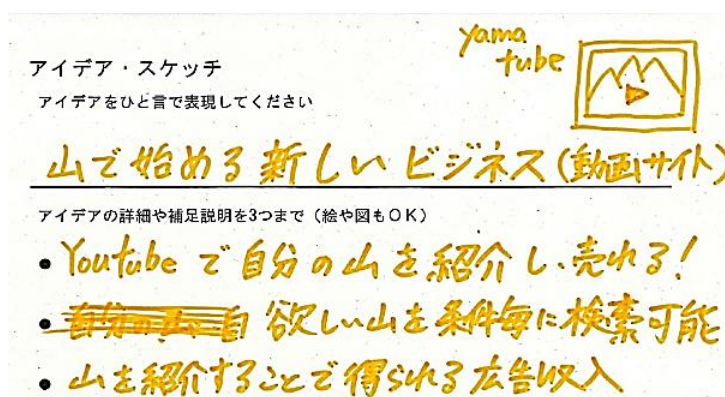 yama
tube
アイデア・スケッチ
アイデアをひと言で表現してください
山で始める新しいビジネス(動画サイト)
アイデアの詳細や補足説明を3つまで（絵や図もOK）
• Youtubeで自分の山を紹介し、売れる!
• 欲しい山を条件毎に検索可能
• 山を紹介することで得られる広告収入